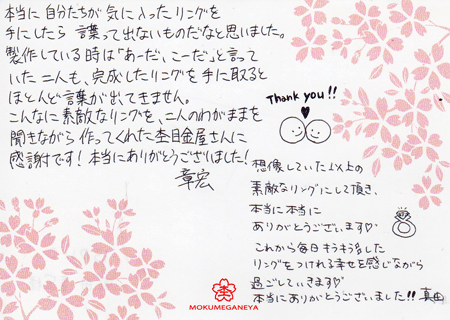 本当に自分たちが気に入ったリングを
手にしたら言葉って出ないものだなと思いました。
製作している時は「あーだ、こーだ」と言って
いた二人も、完成したリングを手に取ると
ほとんど言葉が出てきません。
こんなに素敵なリングを、二人のわがままを
聞きながら作ってくれた杢目金屋さんに
感謝です！本当にありがとうございました！
章宏
Thank you!!
想像していた以上の
素敵なリングにして頂き、
本当に本当に
ありがとうございます♡
これから毎日キラキラした
リングをつけれる幸せを感じながら
過ごしていきます♡
本当にありがとうございました!! 真由
MOKUMEGANEYA